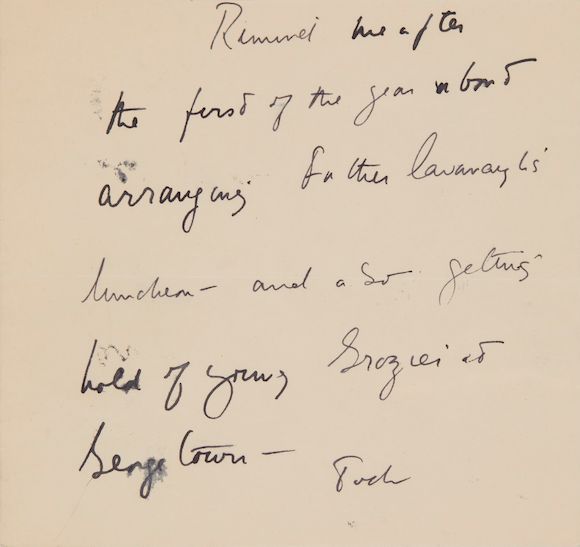 Remind me after
the first of the year about
arranging Father Cavanaugh's
luncheon – and also getting
hold of young at
Georgetown –